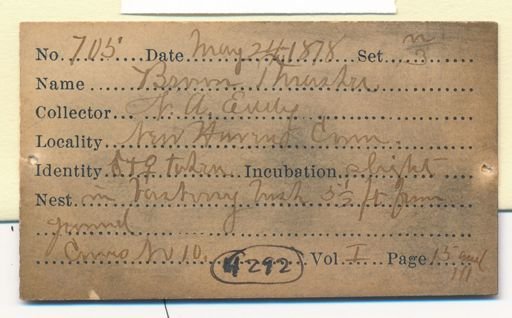 No. 705 Date May 24 1878 Set n/3
Name Brown Thrasher
Collector N. A. Eddy
Locality New Haven Conn.
Identity taken Incubation slight
Nest in bush ft from
ground
No 10. 4292 Vol. I Page 15 and